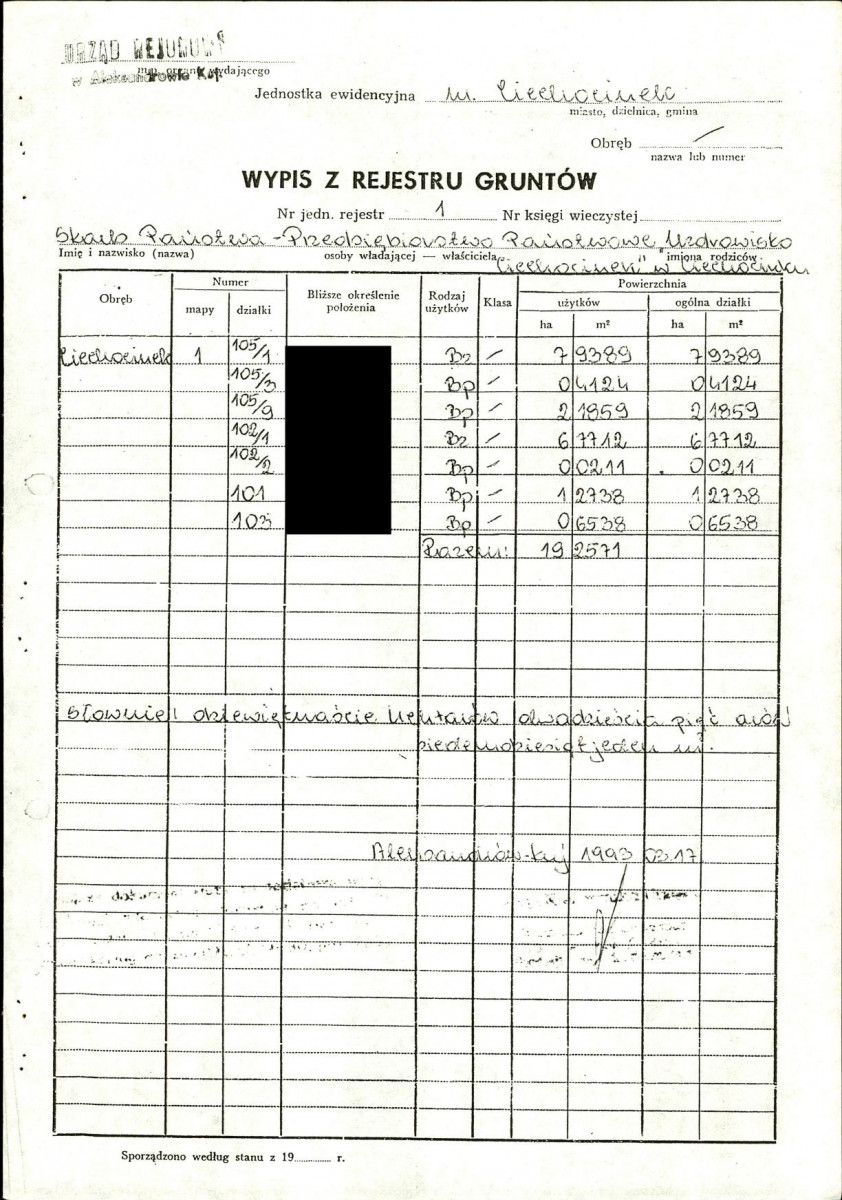 URZĄD REJONOWY
w Aleksandrowie Kuj.
organu wydającego
Jednostka ewidencyjna m. Ciechocinek
miasto, dzielnica, gmina
Obręb /
nazwa lub numer
WYPIS Z REJESTRU GRUNTÓW
Nr jedn. rejestr 1 Nr księgi wieczystej
Skarb Państwa - Przedsiębiorstwo Państwowe „Uzdrowisko
Imię i nazwisko (nazwa) osoby władającej — właściciela imiona rodziców
Ciechocinek" w Ciechocinku
Obręb Numer Bliższe określenie położenia Rodzaj użytków Klasa Powierzchnia
mapy działki użytków ogólna działki
ha m² ha m²
Ciechocinek 1 105/1 Bz / 7 9389 7 9389
105/3 Bp / 0 4124 0 4124
105/9 Bp / 2 1859 2 1859
102/1 Bz / 6 7712 6 7712
102/2 Bp / 0 0211 0 0211
101 Bp / 1 2738 1 2738
103 Bp / 0 6538 0 6538
Razem: 19 2571
Słownie: dziewiętnaście hektarów dwadzieścia pięć arów
siedemdziesiąt jeden m².
Aleksandrów-Kuj 1993 03.17
Sporządzono według stanu z 19 r.